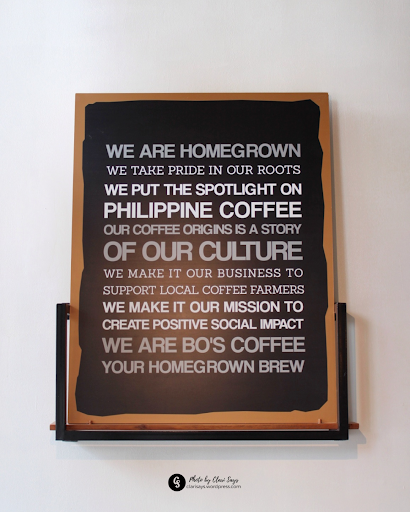 WE ARE HOMEGROWN
WE TAKE PRIDE IN OUR ROOTS
WE PUT THE SPOTLIGHT ON
PHILIPPINE COFFEE
OUR COFFEE ORIGINS IS A STORY
OF OUR CULTURE
WE MAKE IT OUR BUSINESS TO
SUPPORT LOCAL COFFEE FARMERS
WE MAKE IT OUR MISSION TO
CREATE POSITIVE SOCIAL IMPACT
WE ARE BO'S COFFEE
YOUR HOMEGROWN BREW
CS
Photo by Clavi Says
clavisays.wordpress.com